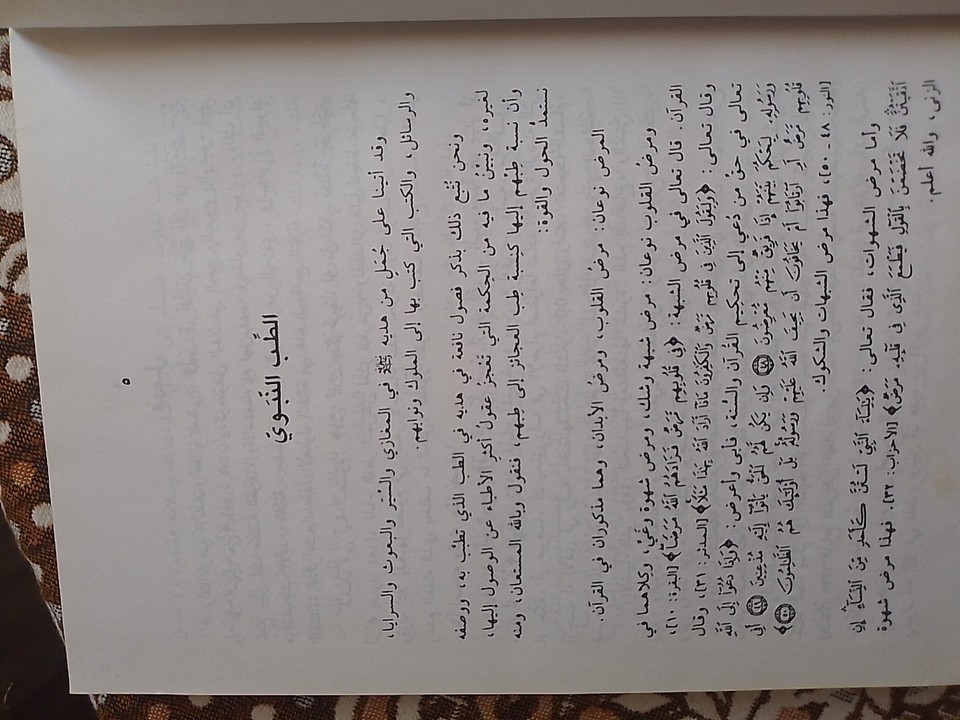 ٥
الطِّب النَّبَويّ
وقد أتينا على جُمَلٍ من هديه ﷺ في المغازي والسِّيَر والبعوث والسرايا،
والرسائل، والكتب التي كتب بها إلى الملوك ونوابهم.
ونحن نُتْبِع ذلك بذكر فصول نافعة في هديه في الطب الذي تطبَّب به، ووصفه
لغيره، ونبيِّنُ ما فيه من الحِكمة التي تَعْجز عقولُ أكثرِ الأطباء عن الوصول إليها،
وأن نسبة طِبهم إليها كنِسبة طِب العجائز إلى طِبهم، فنقول وبالله المستعان، ومنه
نستمدُّ الحول والقوة:
المرض نوعان: مرضُ القلوب، ومرضُ الأبدان، وهما مذكوران في القرآن.
ومرضُ القلوب نوعان: مرض شبهة وشك، ومرض شهوة وغَيٍّ، وكلاهما في
القرآن. قال تعالى في مرض الشبهة: ﴿فِى قُلُوبِهِم مَّرَضٌ فَزَادَهُمُ ٱللَّهُ مَرَضًا﴾ [البقرة: ١٠]،
وقال تعالى: ﴿وَلِيَقُولَ ٱلَّذِينَ فِى قُلُوبِهِم مَّرَضٌ وَٱلْكَٰفِرُونَ مَاذَآ أَرَادَ ٱللَّهُ بِهَٰذَا مَثَلًا﴾ [المدثر: ٣١]، وقال
تعالى في حقِّ من دُعي إلى تحكيم القُرآن والسُّنة، فأبى وأعرض: ﴿وَإِذَا دُعُوٓا۟ إِلَى ٱللَّهِ
وَرَسُولِهِۦ لِيَحْكُمَ بَيْنَهُمْ إِذَا فَرِيقٌ مِّنْهُم مُّعْرِضُونَ ٤٨ وَإِن يَكُن لَّهُمُ ٱلْحَقُّ يَأْتُوٓا۟ إِلَيْهِ مُذْعِنِينَ ٤٩ أَفِى
قُلُوبِهِم مَّرَضٌ أَمِ ٱرْتَابُوٓا۟ أَمْ يَخَافُونَ أَن يَحِيفَ ٱللَّهُ عَلَيْهِمْ وَرَسُولُهُۥ بَلْ أُو۟لَٰٓئِكَ هُمُ ٱلظَّٰلِمُونَ ٥٠﴾
[النور: ٤٨ ـ ٥٠]، فهذا مرض الشبهات والشكوك.
وأما مرض الشهوات، فقال تعالى: ﴿يَٰنِسَآءَ ٱلنَّبِىِّ لَسْتُنَّ كَأَحَدٍ مِّنَ ٱلنِّسَآءِ إِنِ
ٱتَّقَيْتُنَّ فَلَا تَخْضَعْنَ بِٱلْقَوْلِ فَيَطْمَعَ ٱلَّذِى فِى قَلْبِهِۦ مَرَضٌ﴾ [الأحزاب: ٣٢]. فهذا مرض شهوة
الزنى، والله أعلم.